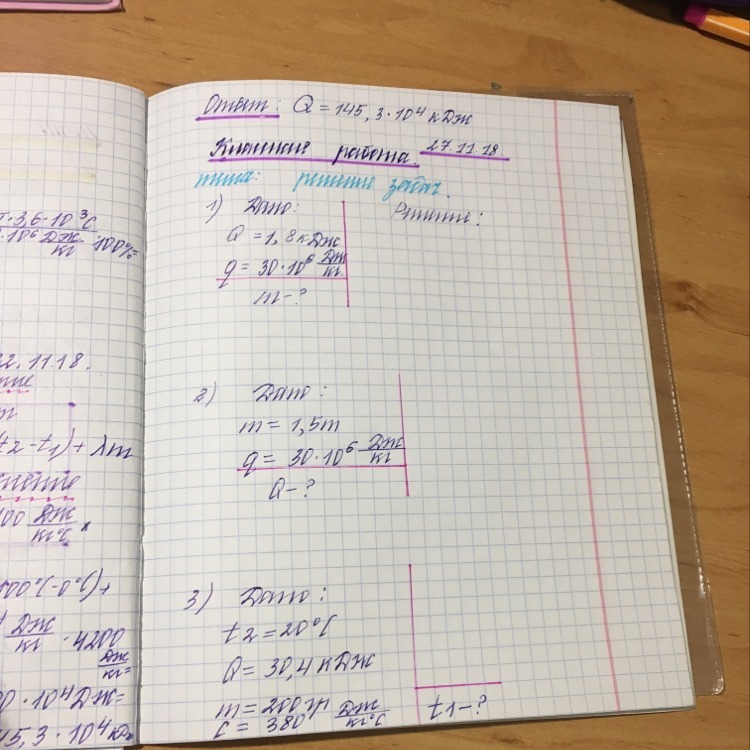 Ответ: Q = 145,3·10⁴ кДж
Классная работа. 27.11.18.
тема: решение задач.
1) Дано:
Решение:
Q = 1,8 кДж
q = 30·10⁶ Дж/кг.
m - ?
2) Дано:
m = 1,5т
q = 30·10⁶ Дж/кг
Q - ?
3) Дано:
t2 = 20°C
Q = 30,4 кДж
m = 200 гр
c = 380 Дж/кг°C
t1 - ?
·3,6·10³с
·10⁶ Дж/кг ·100%=
22.11.18.
t2-t1)+λm
100 Дж/кг°C ×
Дж/кг · 4200
Дж/кг=
0·10⁴Дж=
45,3·10⁴кДж